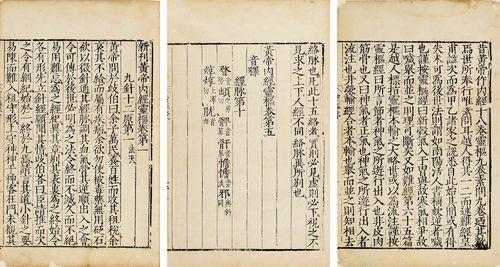 昔黃帝作內經十八卷靈樞九卷素問九卷迺其數焉
世所奉行唯素問耳越人得其一二而述難經皇
甫謐次而爲甲乙諸家之說悉自此始其間或有得
失未可爲後世法則謂如南陽活人書稱欬逆者噦
也謹按靈樞經曰新穀氣入于胃與故寒氣相爭故
曰噦舉而並之則理可斷矣又如難經第六十五篇
是越人標指靈樞本輸之大略世或以爲流注謹按
靈樞經曰所言節者神氣之所遊行出入也非皮肉
筋骨也又曰神氣者正氣也神氣之所遊行出入者
流注也井滎輸經合者本輸也舉而並之則知相去
絡脉也凡此十五絡者實則必見虛則必下視之不
見求之上下人經不同絡脉異所別也
黃帝內經靈樞卷第五
音釋
經脉第十
新刊黃帝內經靈樞卷第一
九針十二原第一 法天
黃帝問於岐伯曰余子萬民養百姓而收其租稅余
哀其不給而屬有疾病余欲勿使被毒藥無用砭石
欲以微針通其經脉調其血氣營其逆順出入之會
令可傳於後世必明爲之法令終而不滅久而不絕
易用難忘爲之經紀異其章別其表裏爲之終始令
各有形先立針經願聞其情岐伯答曰臣請推而次
之令有綱紀始於一終於九焉請言其道小針之要
易陳而難入粗守形上守神神乎神客在門未覩其